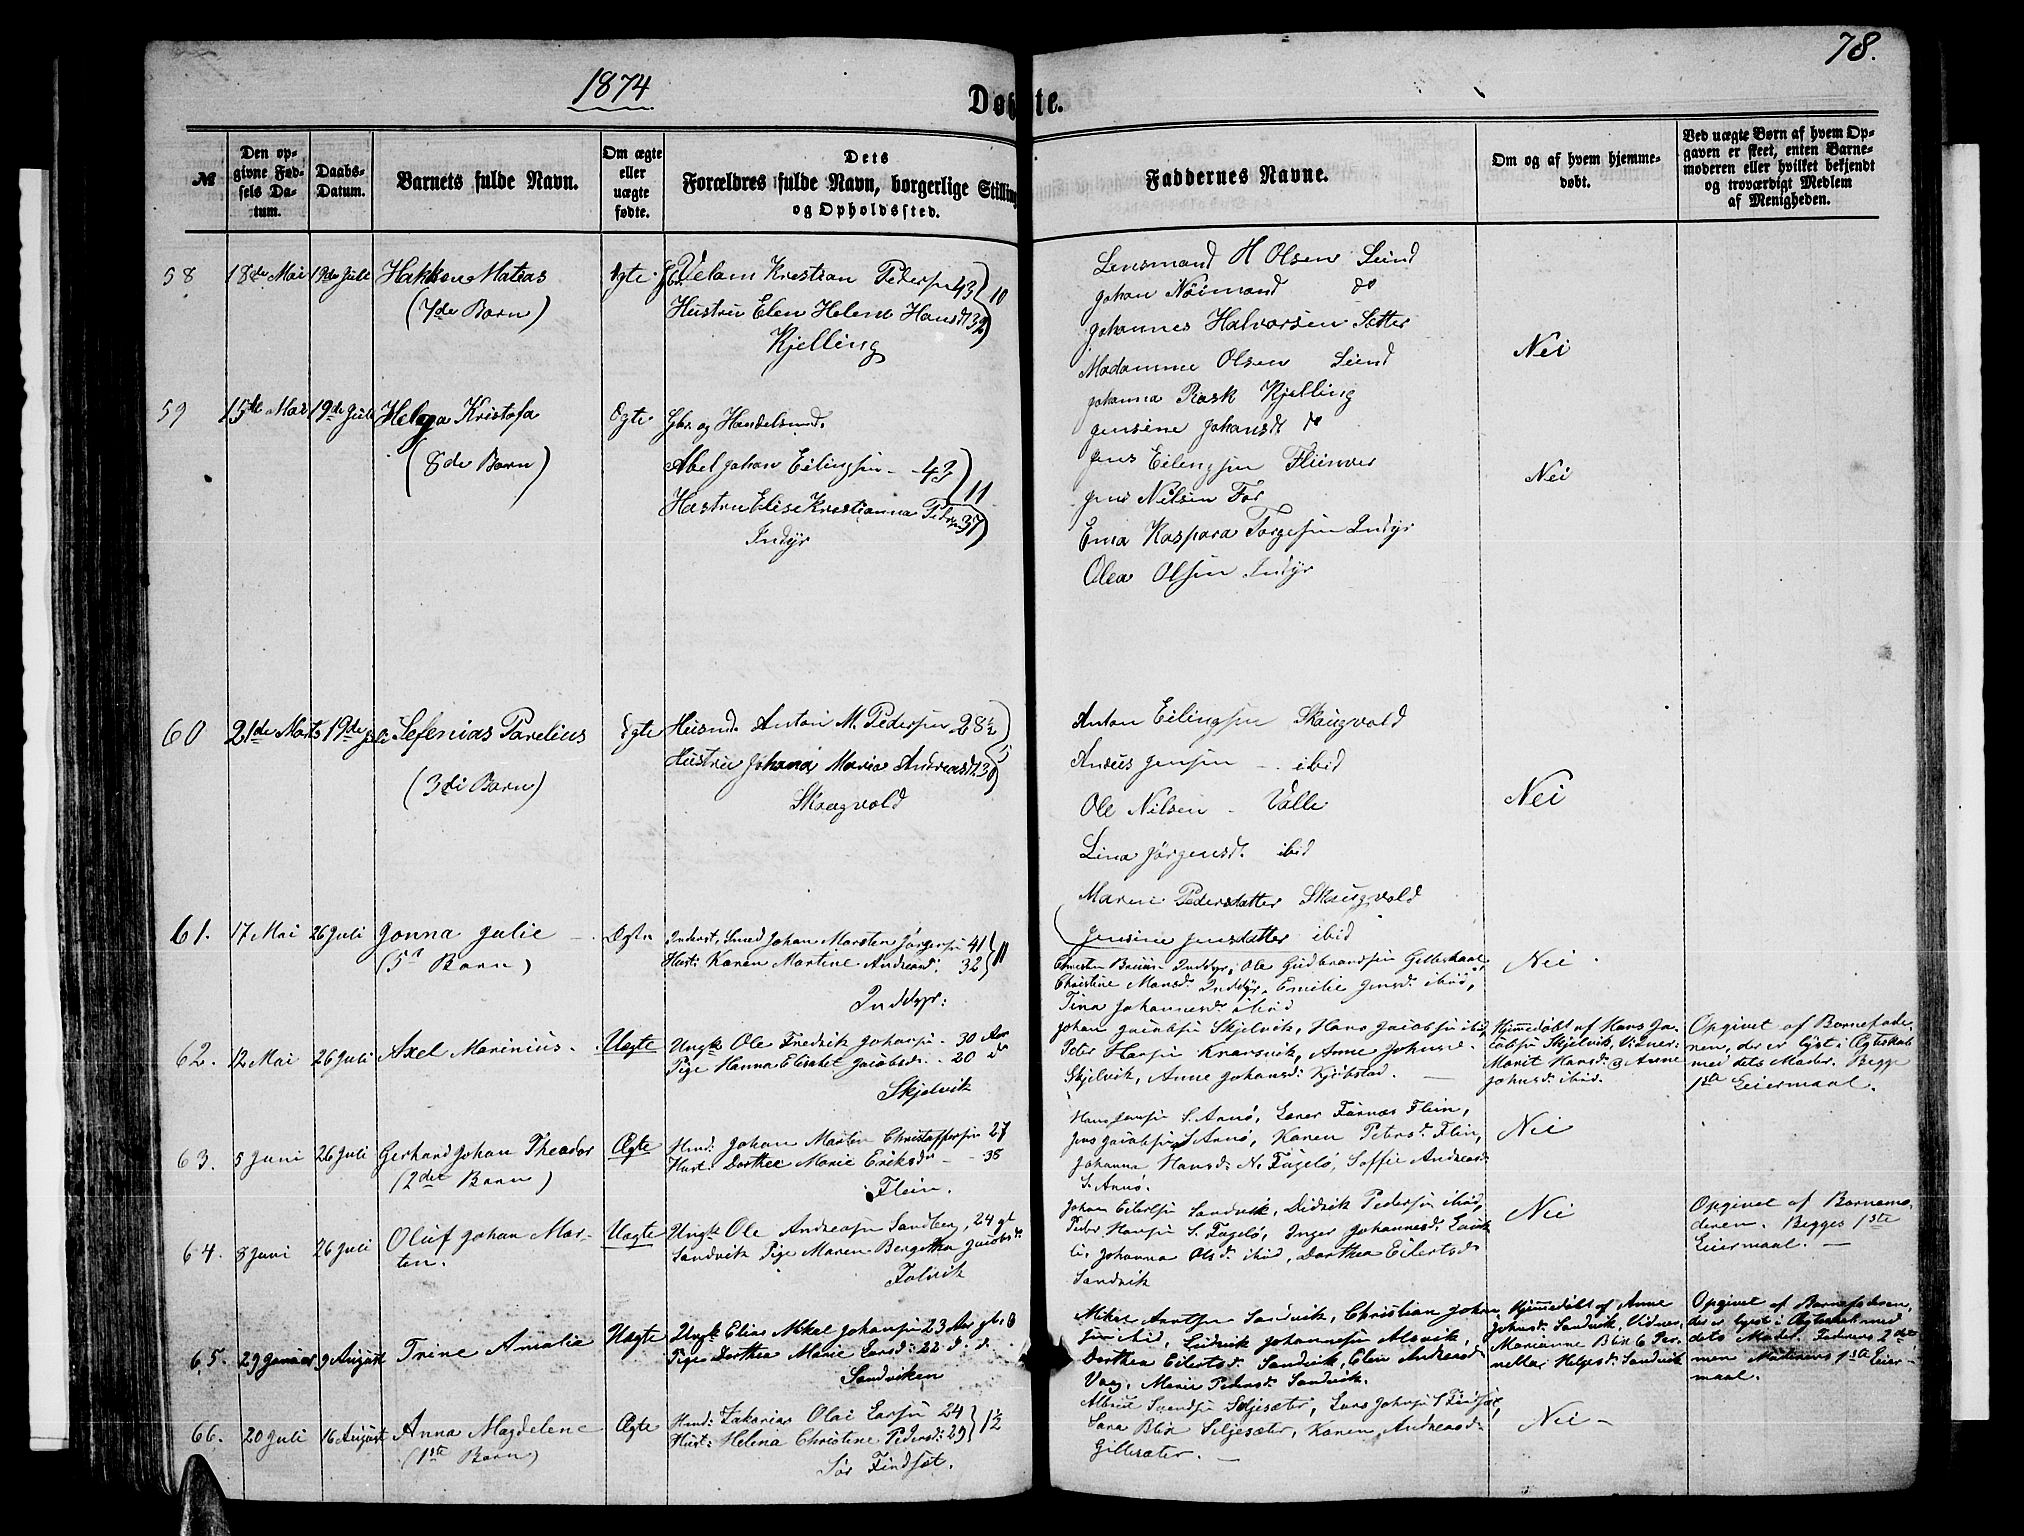 78.
1874
Døbte.
№
Den op-
givne Fød-
sels Da-
tum.
Daabs-
Datum.
Barnets fulde Navn.
Om ægte
eller
uægte
fødte.
Dets
Forældres fulde Navn, borgerlige Stilling
og Opholdssted.
Faddernes Navne.
Om og af hvem hjemme-
døbt.
Ved uægte Børn af hvem Op-
gaven er skeet, enten Barne-
moderen eller hvilket bekjendt
og troværdigt Medlem
af Menigheden.
58 18de Mai 19de Juli Hakken Matias
(7de Barn)
Ægte
Velam Krestian Pedersen 43
Hustru Elen Helene Hansdt 32
10
Kjelling
Lensmand H Olsen Lund
Johan Nöimand do
Johannes Halvorsen Sætter
Madamme Olsen Lund
Johanna Rask Kjelling
Jensine Johansdt do
Nei
59 15de Mai 19de Juli Helga Kristofa
(8de Barn)
Ægte
Gbr. og Handelsmd.
Abel Johan Eilingsen - 43
Hustru Elise Krestianna Peders 37
11
Indyr
Jens Eilingsen Fleinvær
Jens Nilsen For
Ema Kaspara Torgesen Indyr
Olea Olsen Indyr
Nei
60 21de Marts 19de Juli Sefenias Parelius
(3di Barn)
Ægte
Husmd. Anton M. Pedersen 28½
Hustru Johana Maria Andreasdt 30
5
Skaugvold
Anton Eilingsen Skaugvold
Anders Jensen - ibid
Ole Nilsen - Valle
Lina Jørgensdt. ibid
Maren Pedersdatter Skaugvold
Jensine Jensdatter ibid
Nei
61. 17 Mai 26 Juli Jonna Julie
(5te Barn)
Ægte
Inderst, Smed Johan Marsten Jørgensen 41
Hust: Karen Martine Andreasd: 32
11
Inddyr:
Bruun Inddyr, Ole Gudbrandsen Gilleskaal
Christine Mansd: Inddyr, Emilie Jensd: ibid,
Tina Johannesd: ibid
Nei.
62. 12 Mai 26 Juli Axel Marinius
Uægte
Ungk: Ole Fredrik Johansen - 30 Aar
Pige Hanna Elisabet Jacobsd: 20 do
Skjelvik
Johan Jacobsen Skjelvik, Hans Jacobsen ibid,
Peter Hansen Knarsvik, Anne Johnsd:
Skjelvik, Anne Johansd: Kjøbstad.
Hjemmedøbt af Hans Ja-
cobsen Skjelvik, Vidner:
Marit Hansd: & Anne
Johnsd: ibid.
Opgivet af Barnefade-
ren, der er lyst i Ægteskab
med dets Moder. Begges
1ste Leiermaal.
63. 5 Juni 26 Juli Gerhard Johan Theodor
(2det Barn)
Ægte
Hmd: Johan Martin Christoffersen 27
Hust: Dorthea Marie Eriksd: - 38
Flein.
Hans Jensen S. Arnø, Farnæs Flein,
Jens Jacobsen S. Arnø, Karen Petersd: Flein,
Johanna Hansd: N. Fugelø, Soffie Andreasd:
S. Arnø.
Nei
64. 8 Juni 26 Juli Oluf Johan Mar-
ten.
Uægte
Ungk: Ole Andreasen Sandberg, 24 gl
Sandvik Pige Maren Bergitha Jacobsd:
Folvik
Johan Eilertsen Sandvik, Didrik Pedersen ibid,
Peder Hansen S. Fugelø, Inger Johannesd:
Johanna Olsd: ibid, Dorthea Eilertsd:
Sandvik
Nei
Opgivet af Barnemo-
deren. Begges 1ste
Leiermaal. -
65. 29 Januar 9 August Trine Amalia
Uægte
Ungk: Elias Mikal Johansen 23 Aar
Pige Dorthea Marie Larsd: 22 d: d:
Sandviken
Mikal Sandvik, Christian Johan
sen ibid, Ludvik Johannesen Alsvik,
Dorthea Eilertsd: Sandvik, Elen Andreasd:
Vaag, Marie Pedersd: Sandvik.
Hjemmedøbt af Anne
Johnsd: Sandvik, Vidner
Marianne Blix & Per-
nella Helgesd: Sandvik
Opgivet af Barnefaderen,
der er lyst i Ægteskab med
dets Moder. Faderens 2det
men Moderens 1ste Leier-
maal.
66. 20 Juli 16 August Anna Magdelene
(1ste Barn)
Ægte
Hmd: Zakarias Olai Larsen 24
Hust: Helena Christine Pedersd: 29
1½
Sør Findset.
Svendsen Seljesæter, Lars Johnsen S Findset,
Sara Blix Seljesæter, Karen Andreasd:
Gillesæter. -
Nei -